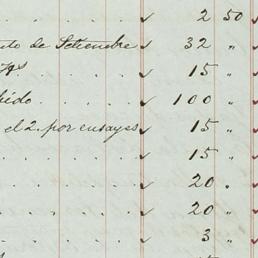 ✓ 2 50 ✓
to de Setiembre ✓ 32 " ✓
✓ 15 " ✓
bido . . . . ✓ 100 " ✓
el 2. por ensayes ✓ 15 " ✓
. . . . . ✓ 15 " ✓
. . . . . ✓ 20 " ✓
. . . . . ✓ 20 " ✓
. . . . . ✓ 3 " ✓